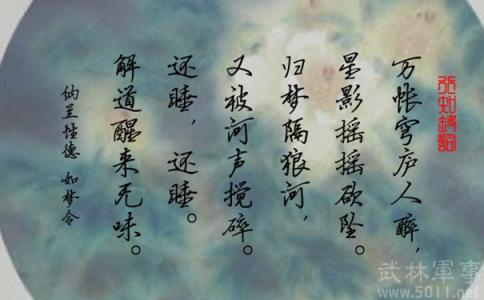 万帐穹庐人醉，
星影摇摇欲坠。
归梦隔狼河，
又被河声搅碎。
还睡，还睡。
解道醒来无味。
纳兰性德 如梦令
武林軍事
www.5011.net